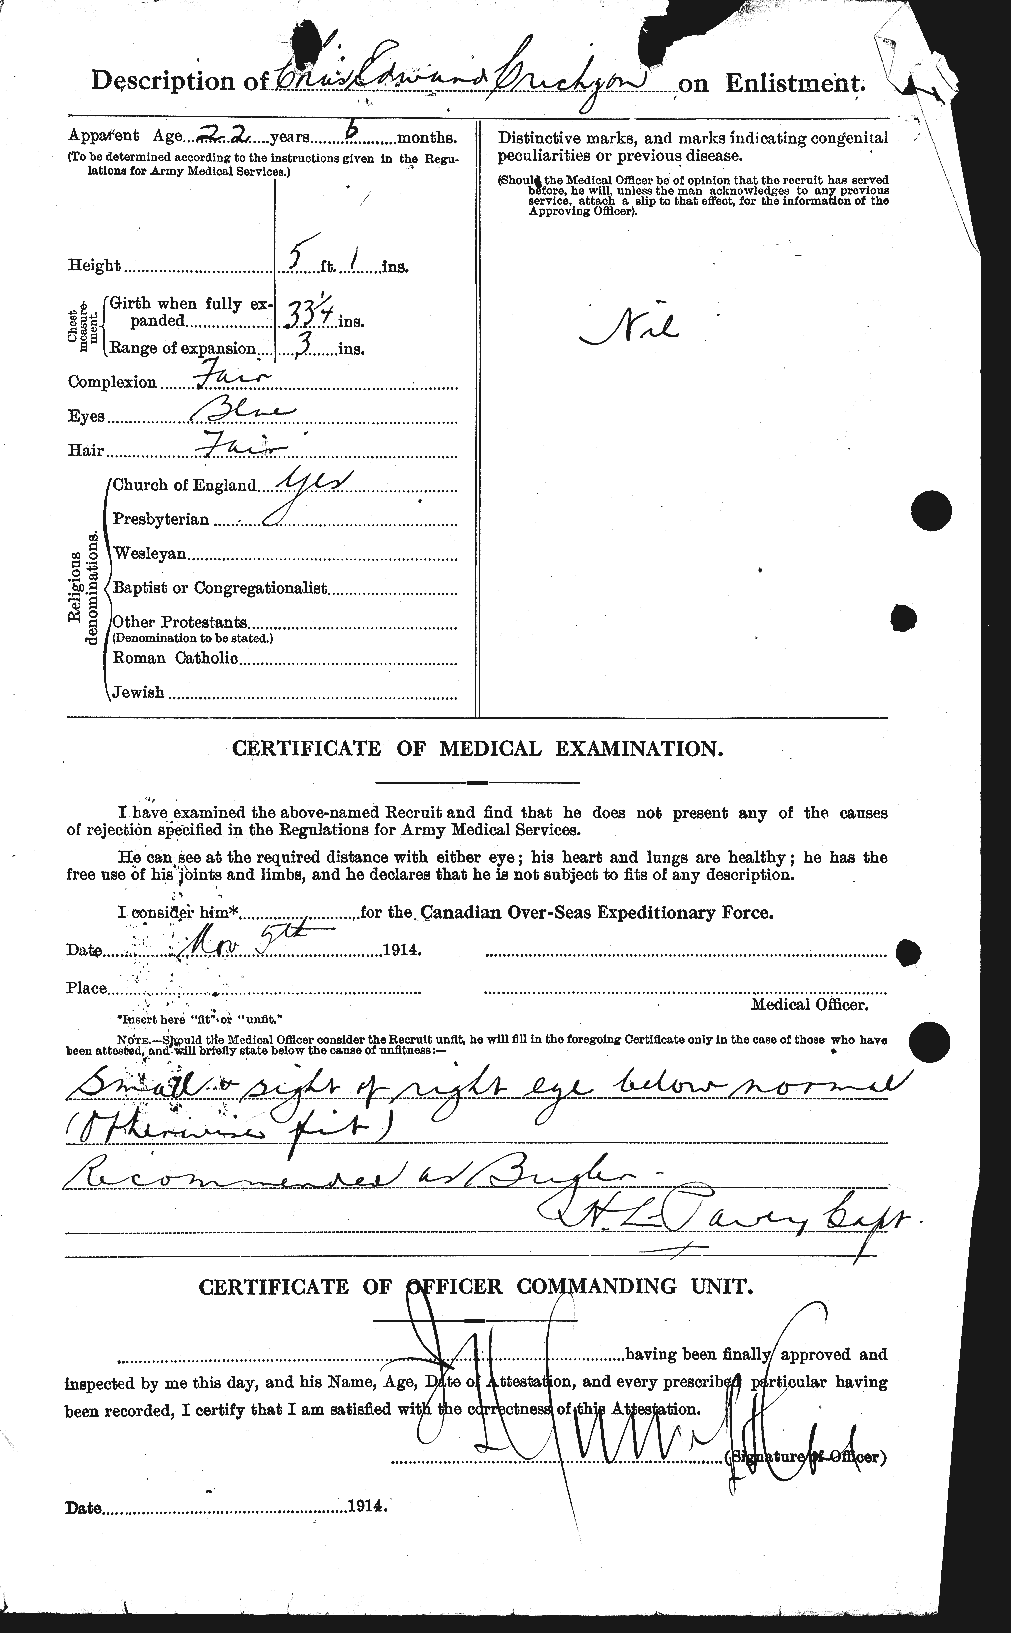 Description of Chas Edward Crichyon on Enlistment.
Apparent Age 22 years 6 months.
(To be determined according to the instructions given in the Regu-
lations for Army Medical Services.)
Height 5 ft. 1 ins.
Chest measure-ment.
Girth when fully ex-
panded 33 1/4 ins.
Range of expansion 3 ins.
Complexion Fair
Eyes Blue
Hair Fair
Religious denominations.
Church of England Yes
Presbyterian
Wesleyan
Baptist or Congregationalist
Other Protestants
(Denomination to be stated.)
Roman Catholic
Jewish
Distinctive marks, and marks indicating congenital
peculiarities or previous disease.
(Should the Medical Officer be of opinion that the recruit has served
before, he will, unless the man acknowledges to any previous
service, attach a slip to that effect, for the information of the
Approving Officer).
Nil
CERTIFICATE OF MEDICAL EXAMINATION.
I have examined the above-named Recruit and find that he does not present any of the causes
of rejection specified in the Regulations for Army Medical Services.
He can see at the required distance with either eye; his heart and lungs are healthy; he has the
free use of his joints and limbs, and he declares that he is not subject to fits of any description.
I consider him* for the Canadian Over-Seas Expeditionary Force.
Date Nov 5th 1914.
Place
Medical Officer.
*Insert here "fit" or "unfit."
NOTE.—Should the Medical Officer consider the Recruit unfit, he will fill in the foregoing Certificate only in the case of those who have
been attested, and will briefly state below the cause of unfitness:—
Small & sight of right eye below normal
(Otherwise fit)
Recommended as Bugler -
H. L. Pavey Capt.
CERTIFICATE OF OFFICER COMMANDING UNIT.
having been finally approved and
inspected by me this day, and his Name, Age, Date of Attestation, and every prescribed particular having
been recorded, I certify that I am satisfied with the correctness of this Attestation.
(Signature of Officer)
Date 1914.